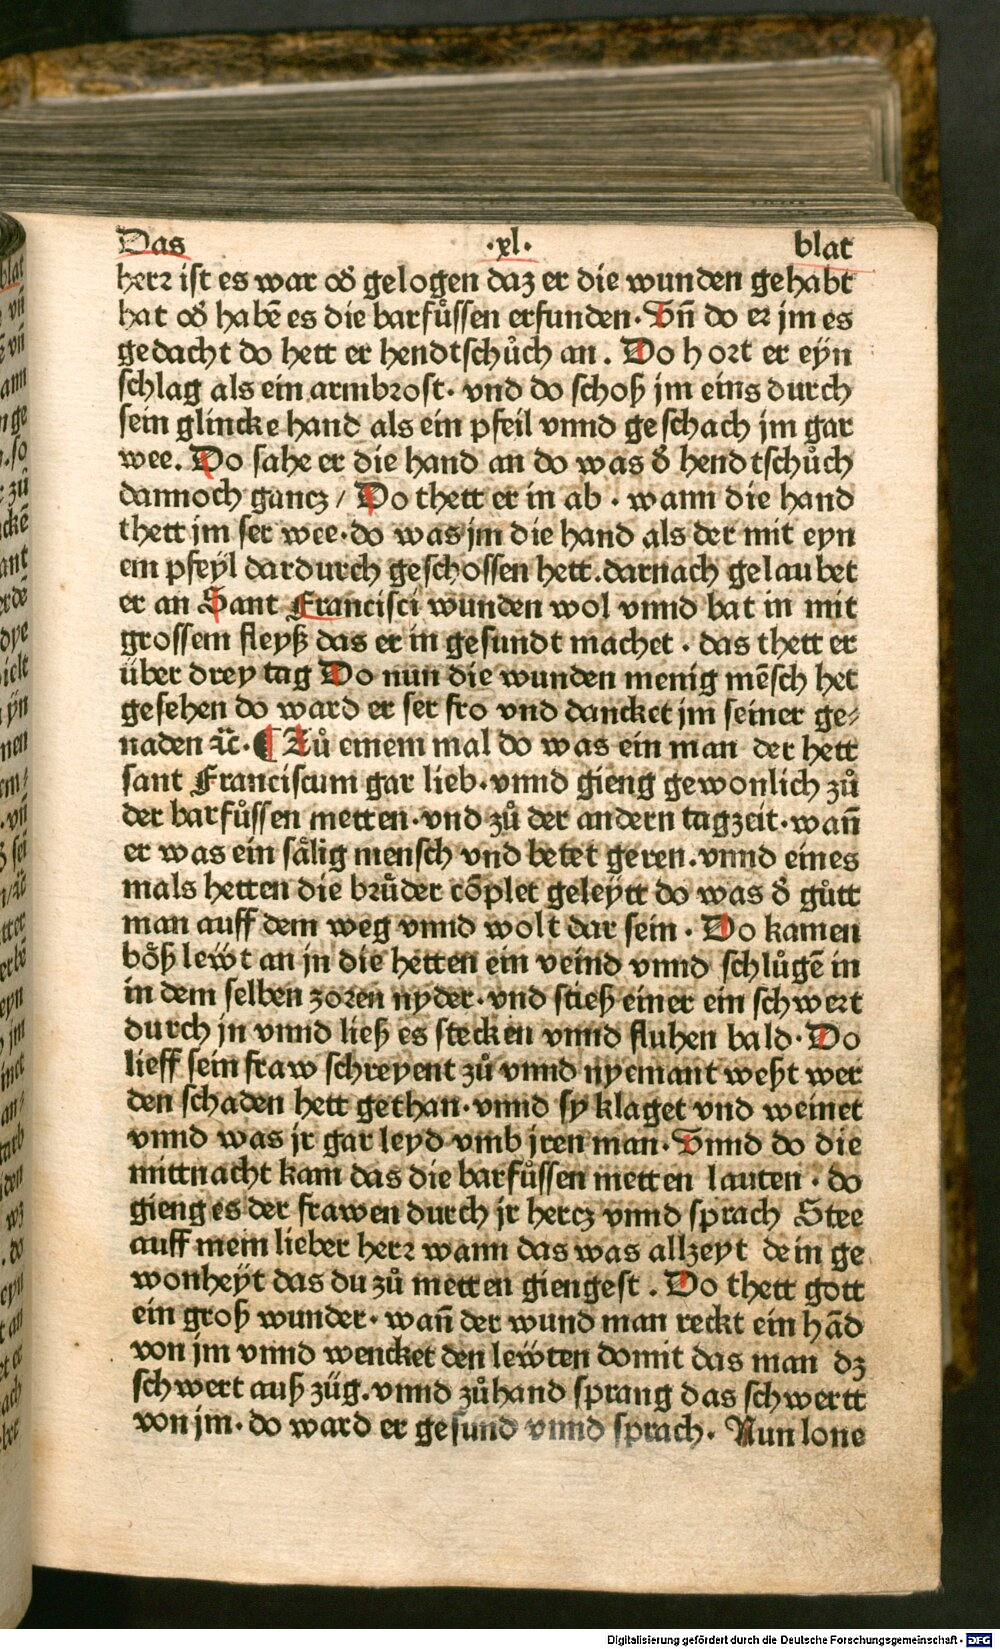 Das ·xl· blat
herꝛ ist es war od̕ gelogen daz er die wunden gehabt
hat od̕ habē es die barfůssen erfunden. Vn̄ do eꝛ jm es
gedacht do hett er hendtschůch an. Do hoꝛt er eyn
schlag als ein armbꝛost. vnd do schoß jm eins durch
sein glincke hand als ein pfeil vnnd geschach jm gar
wee. Do sahe er die hand an do was d̕ hendtschůch
dannoch gancz / Do thett er in ab . wann die hand
thett jm ser wee.do was jm die hand als der mit eyn
em pfeÿl dardurch geschossen hett.darnach gelaubet
er an Sant Francisci wunden wol vnnd bat in mit
grossem fleyß das er in gesundt machet . das thett er
über drey tag Do nun die wunden menig mēsch het
gesehen do ward er ser fro vnd dancket jm seiner ge⸗
naden ꝛc̄. ¶ Zů einem mal do was ein man der hett
sant Franciscum gar lieb.vnnd gieng gewonlich zů
der barfůssen metten.vnd zů der andern tagzeit.wan̄
er was ein sålig mensch vnd betet geren.vnnd eines
mals hetten die brůder cōplet geleÿtt do was d̕ gůtt
man auff dem weg vnnd wolt dar sein . Do kamen
bôß lewt an jn die hetten ein veind vnnd schlůgē in
in dem selben zoꝛen nyder.vnd stieß einer ein schwert
durch jn vnnd ließ es stecken vnnd fluhen bald. Do
lieff sein fraw schreyent zů vnnd nyemant weßt wer
den schaden hett gethan.vnnd sy klaget vnd weinet
vnnd was jr gar leyd vmb jren man. Vnnd do die
mittnacht kam das die barfůssen metten lauten . do
gieng es der frawen durch jr hercz vnnd sprach Stee
auff mein lieber herꝛ wann das was allzeyt dein ge
wonheÿt das du zů metten giengest . Do thett gott
ein groß wunder. wan̄ der wund man reckt ein hād
von jm vnnd wencket den lewten domit das man dz
schwert auß züg.vnnd zůhand sprang das schwertt
von jm. do ward er gesund vnnd sprach. Nun lone
Digitalisierung gefördert durch die Deutsche Forschungsgemeinschaft - DFG